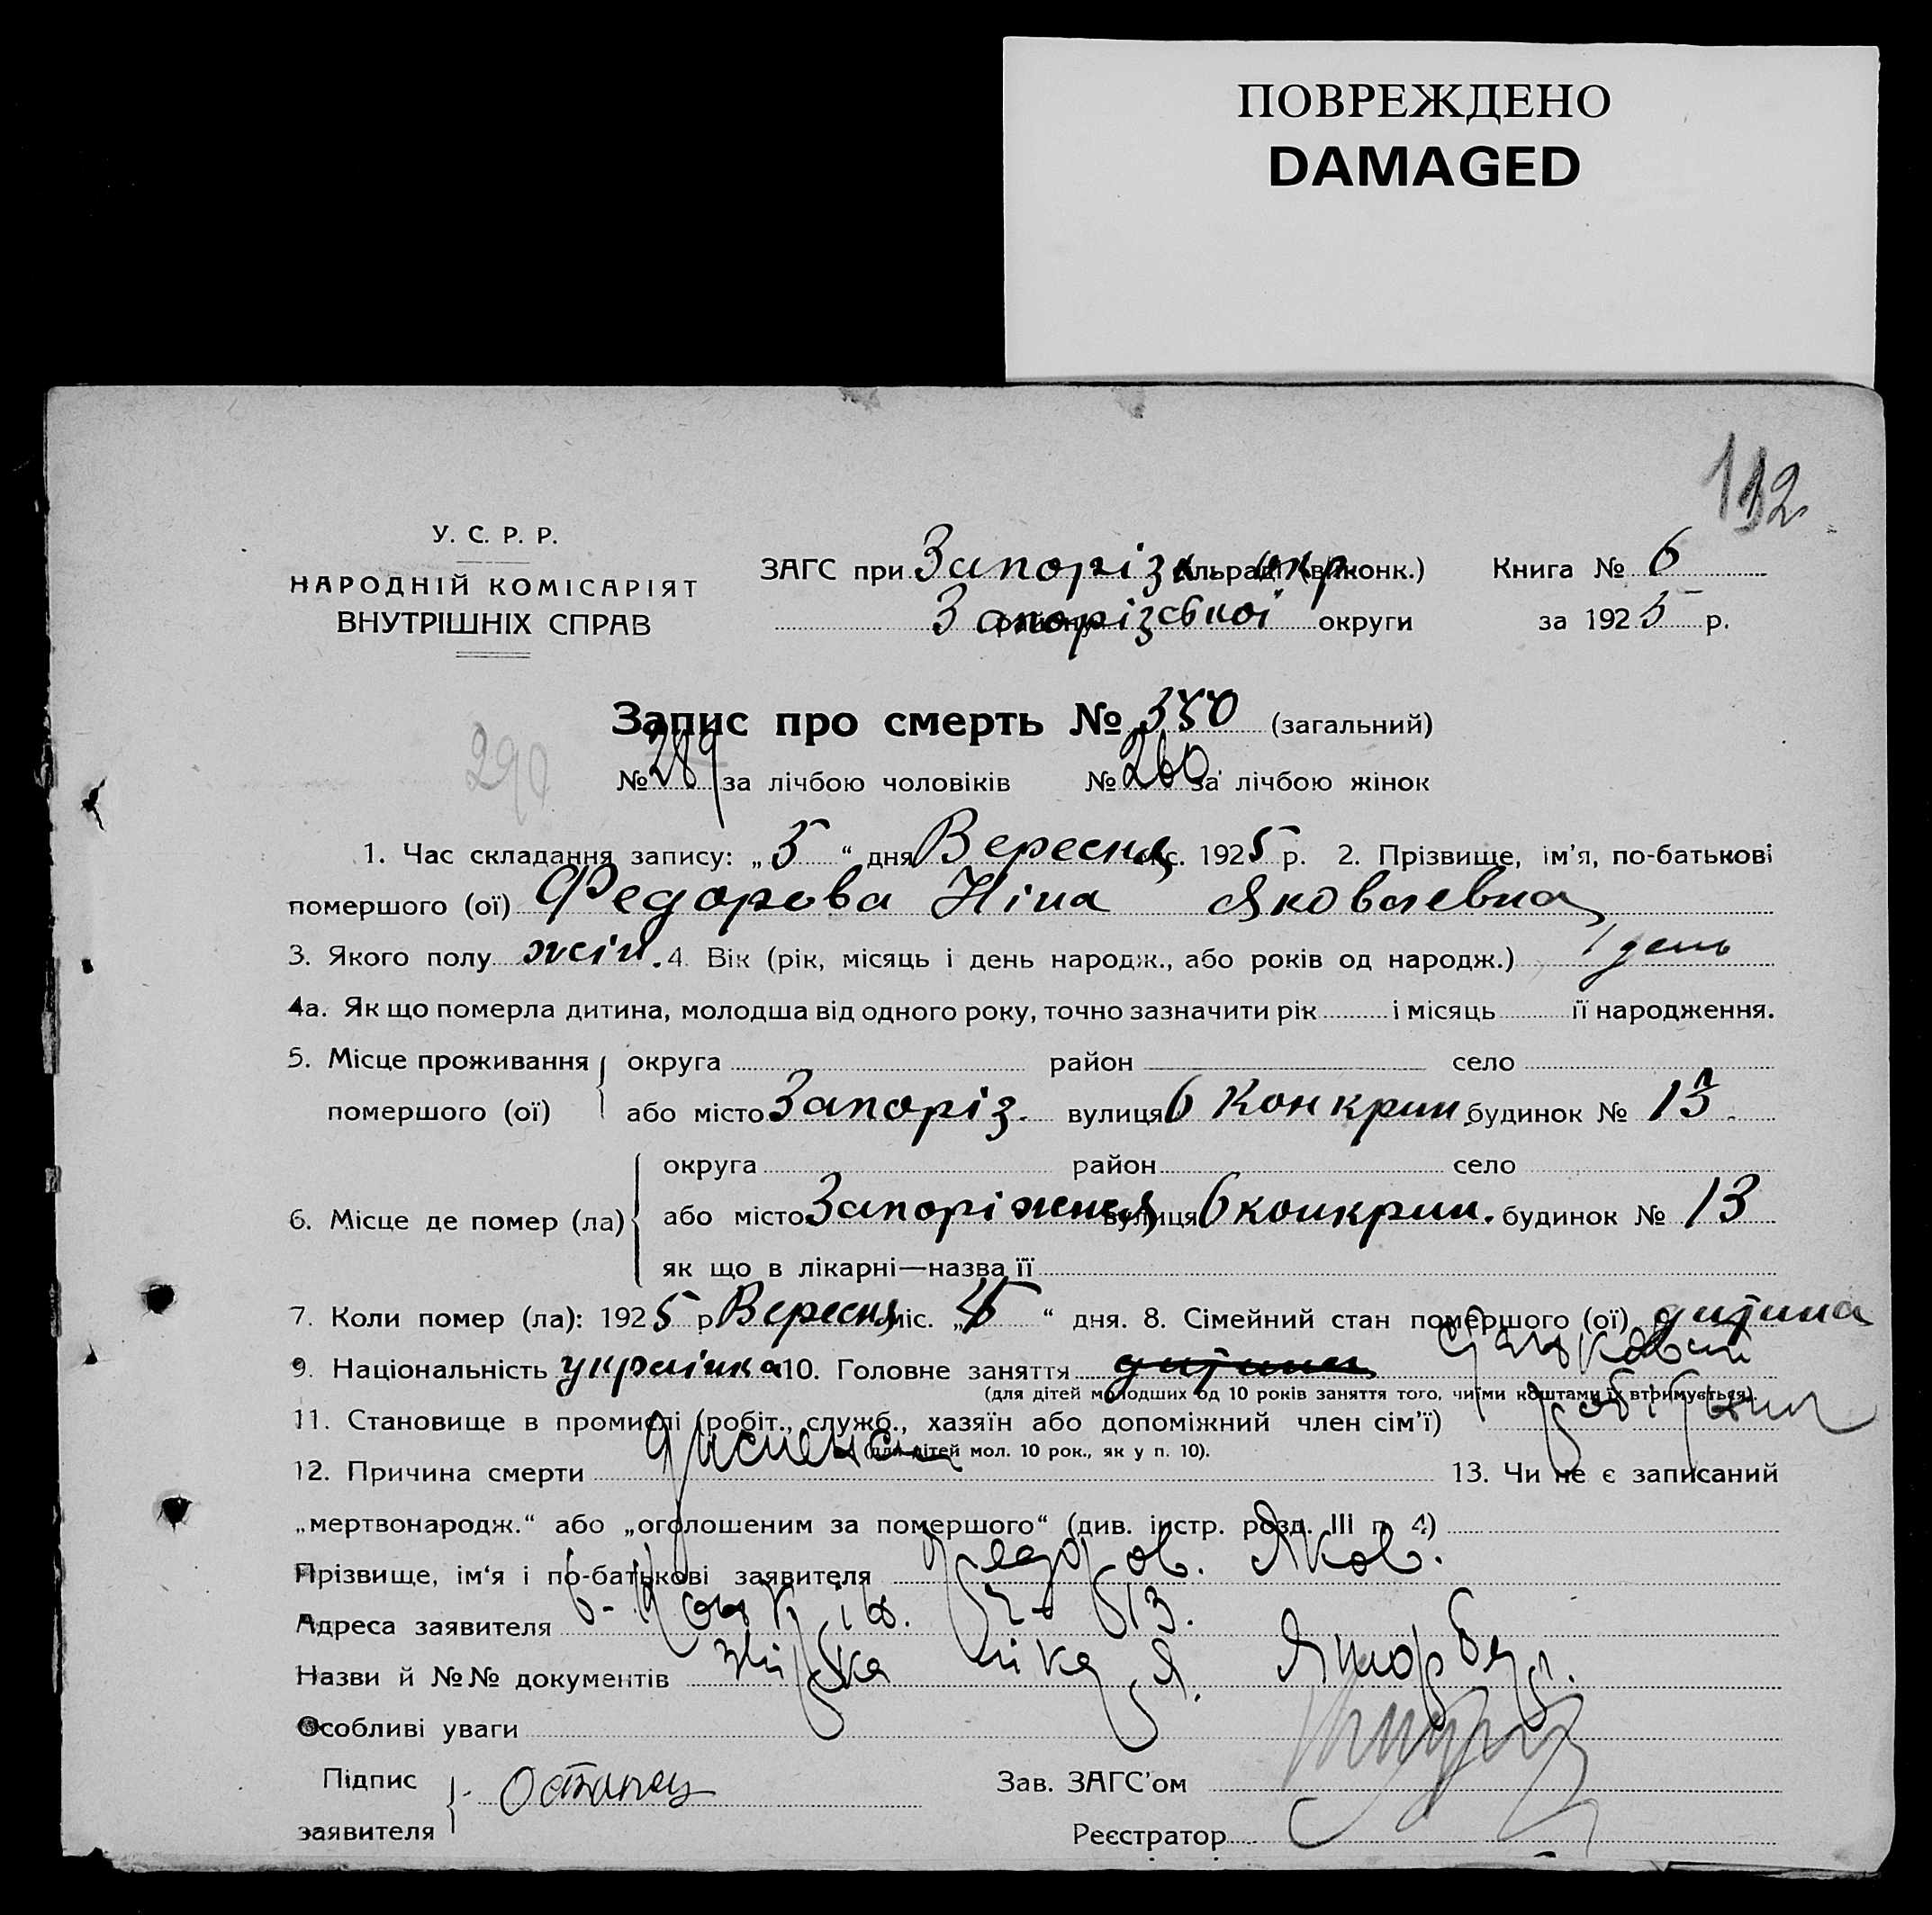 ПОВРЕЖДЕНО
DAMAGED
112
У. С. Р. Р.
НАРОДНІЙ КОМІСАРІЯТ
ВНУТРІШНІХ СПРАВ
ЗАГС при Запорізк. окр. (виконк.) Книга № 6
Запорізської округи за 1925 р.
Запис про смерть № 350 (загальний)
290
№ 289 за лічбою чоловіків № 260 за лічбою жінок
1. Час складання запису: „5“ дня Вересня міс. 1925 р. 2. Прізвище, ім’я, по-батькові
помершого (ої) Федорова Ніна Яковлевна
3. Якого полу жін. 4. Вік (рік, місяць і день народж., або років од народж.) 1 день
4а. Як що померла дитина, молодша від одного року, точно зазначити рік і місяць її народження.
5. Місце проживання округа район село
помершого (ої) або місто Запоріз. вулиця 6 Конкрин. будинок № 13
округа район село
6. Місце де помер (ла) або місто Запоріжжя вулиця 6 конкрин. будинок № 13
як що в лікарні—назва її
7. Коли помер (ла): 1925 р. Вересня міс. „ “ дня. 8. Сімейний стан помершого (ої) дитина
9. Національність українка 10. Головне заняття дитина
(для дітей молодших од 10 років заняття того, чиїми коштами їх втримується)
11. Становище в промислі (робіт., служб., хазяїн або допоміжний член сім’ї)
(для дітей мол. 10 рок., як у п. 10).
12. Причина смерти 13. Чи не є записаний
„мертвонародж.“ або „оголошеним за помершого“ (див. інстр. розд. III п. 4)
Прізвище, ім‘я і по-батькові заявителя Федоров. Яков.
Адреса заявителя 13.
Назви й №№ документів
Особливі уваги
Підпис
заявителя Остапец
Зав. ЗАГС’ом
Реєстратор